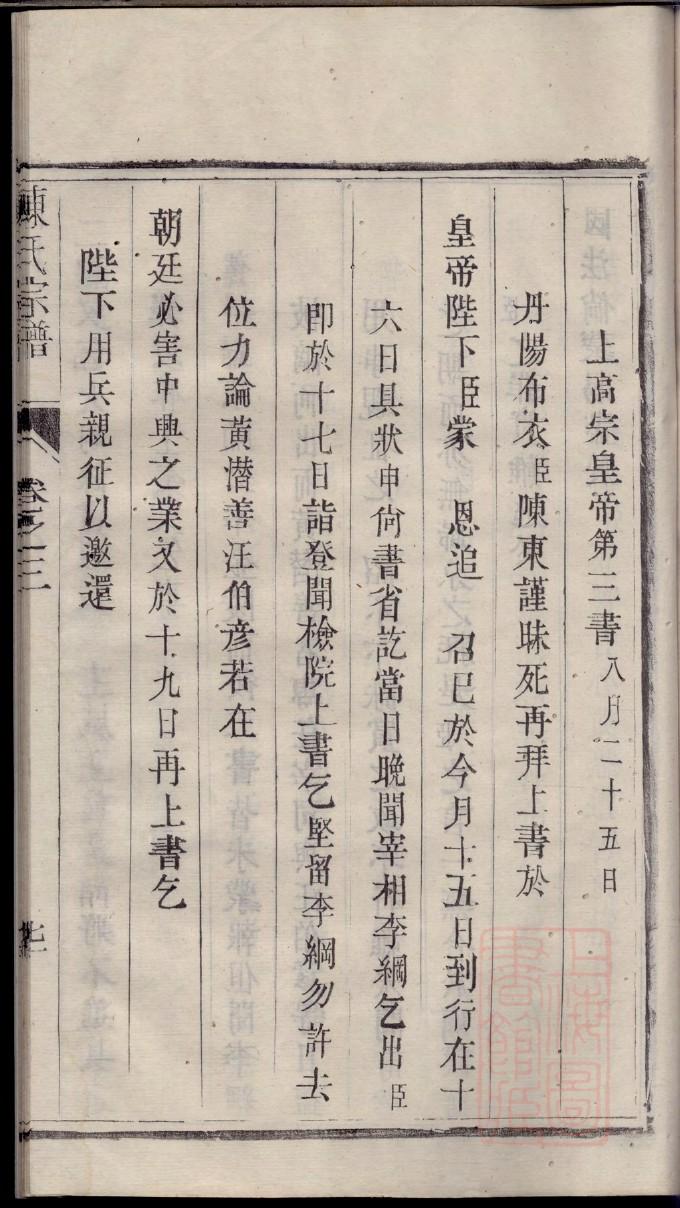 上高宗皇帝第三書八月二十五日
丹陽布衣臣陳東謹昧死再拜上書於
皇帝陛下臣蒙 恩追 召已於今月十五日到行在十
六日具狀申尙書省訖當日晚聞宰相李綱乞出臣
即於十七日詣登聞檢院上書乞堅留李綱勿許去
位力論黃潛善汪伯彦若在
朝廷必害中興之業又於十九日再上書乞
陛下用兵親征以邀還
陳氏宗譜 卷之三
上海圖書館藏